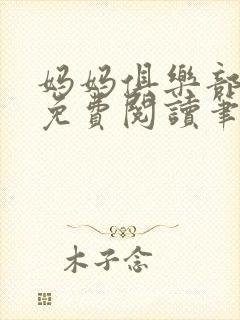 妈妈俱樂部
免費閱讀筆
木子念